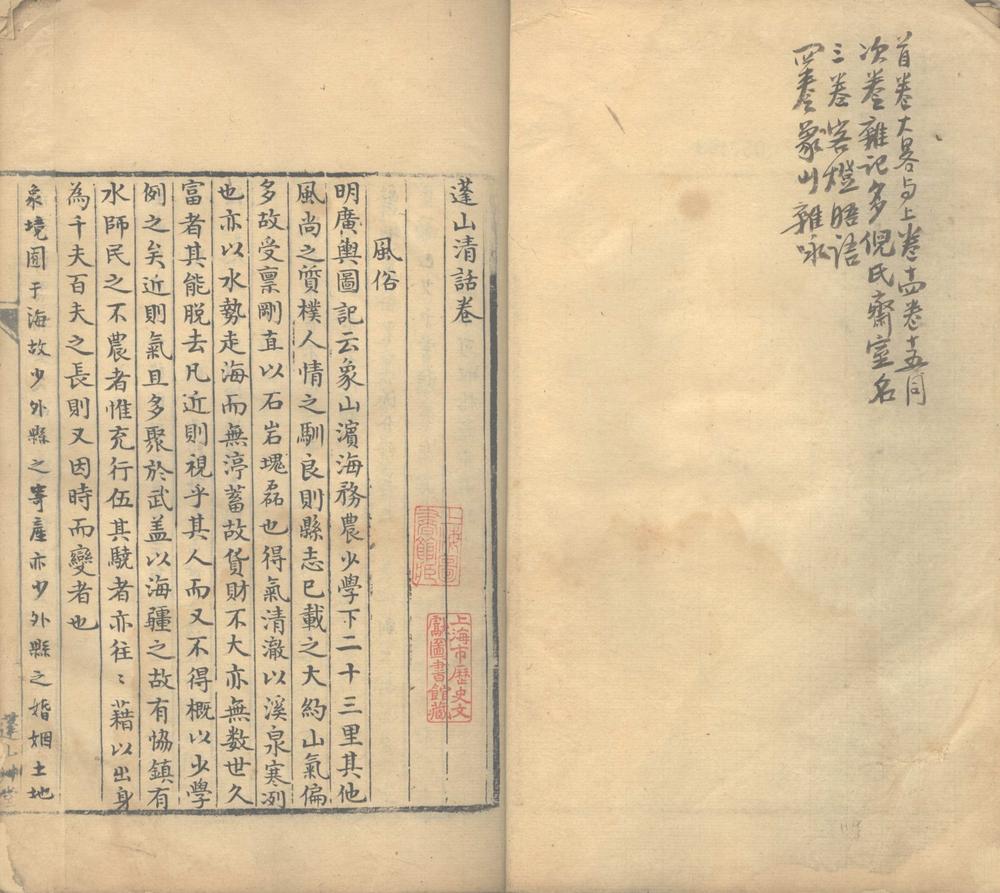 首卷大畧与上卷十四卷十五同
次卷雜記多倪氏齋室名
三卷客燈晤语
四卷象山雜咏
蓬山清話卷
風俗
明廣輿圖記云象山濵海務農少學下二十三里其他
風尚之質樸人情之馴良則縣志已載之大約山氣偏
多故受禀剛直以石岩塊磊也得氣清澈以溪泉寒冽
也亦以水勢走海而無渟蓄故貨財不大亦無数世久
富者其能脱去凡近則視乎其人而又不得概以少學
例之矣近則氣且多聚於武盖以海疆之故有恊鎮有
水師民之不農者惟充行伍其驍者亦往〻藉以出身
為千夫百夫之長則又因時而變者也
象境囿于海故少外縣之寄產亦少外縣之婚姻土地
上海圖書館藏
上海市歷史文獻圖書館藏